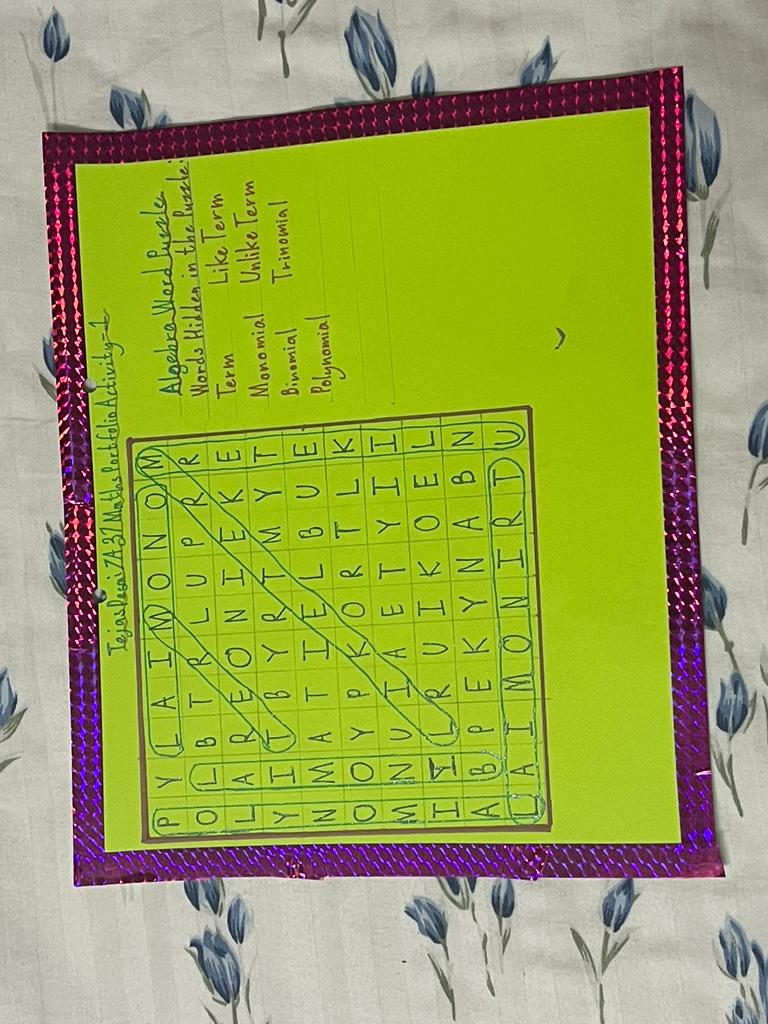 Tejas Desai 7A 37 Maths Portfolio Activity-1
P Y L A I M O N O M
O L B T R L U P R R
L A R E O N I E K E
Y I T B Y R T M Y T
N M A T I E L B U E
O O Y P K O R T L K
M N U I A E T Y I I
I I L R U I K O E L
A B P E K Y N A B N
L A I M O N I R T U
Algebra Word Puzzle
Words Hidden in the Puzzle:
Term Like Term
Monomial Unlike Term
Binomial Trinomial
Polynomial